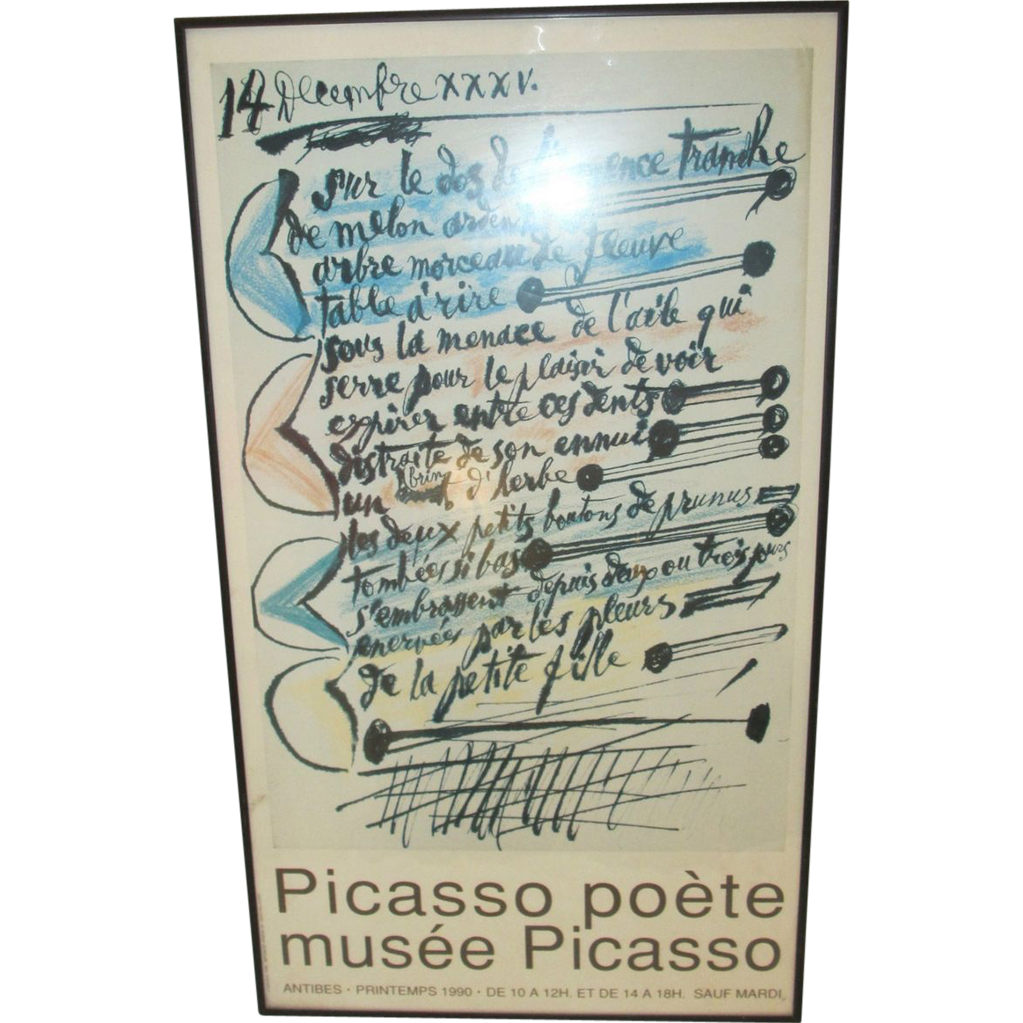 14 Decembre XXXV.
sur le dos de tranche
de melon
arbre morceau de fleuve
table à rire
sous la menace de l'aile qui
serre pour le plaisir de voir
expirer entre ces dents
distraite de son ennui
un brin d'herbe
les deux petits boutons de prunus
tombées si bas
s'embrassent depuis deux ou trois jours
enervées par les pleurs
de la petite fille
Picasso poète
musée Picasso
ANTIBES • PRINTEMPS 1990 • DE 10 A 12H. ET DE 14 A 18H. SAUF MARDI